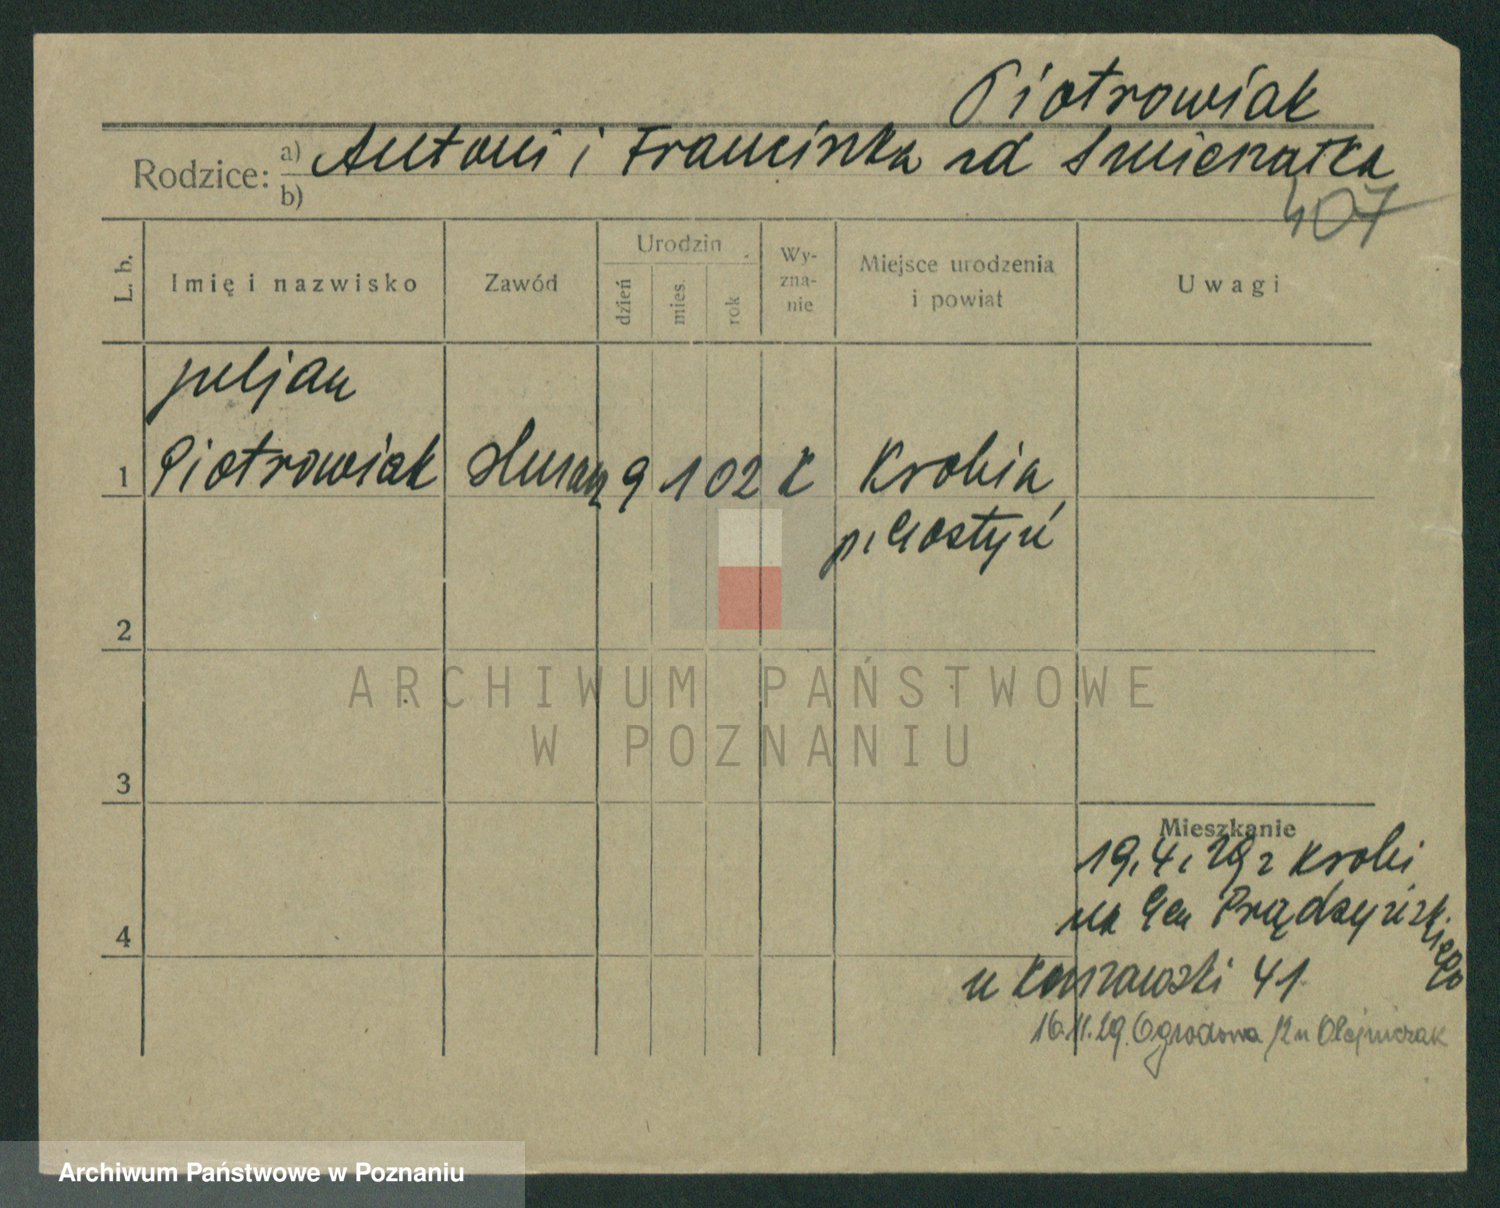 Piotrowiak
Rodzice: a) Antoni i Franciszka zd
b)
407
L. b.
Imię i nazwisko
Zawód
Urodzin
dzień
mies.
rok
Wy-
zna-
nie
Miejsce urodzenia
i powiat
Uwagi
Juljan
1 Piotrowiak ślusarz 9 1 02 K Krobia
p. Gostyń
2
3
4
Mieszkanie
19.4.29 z Krobi
na Gen Prądzyńskiego
u 41.
16.11.29. Ogrodowa 12 u Olejniczak
ARCHIWUM PAŃSTWOWE
W POZNANIU
Archiwum Państwowe w Poznaniu